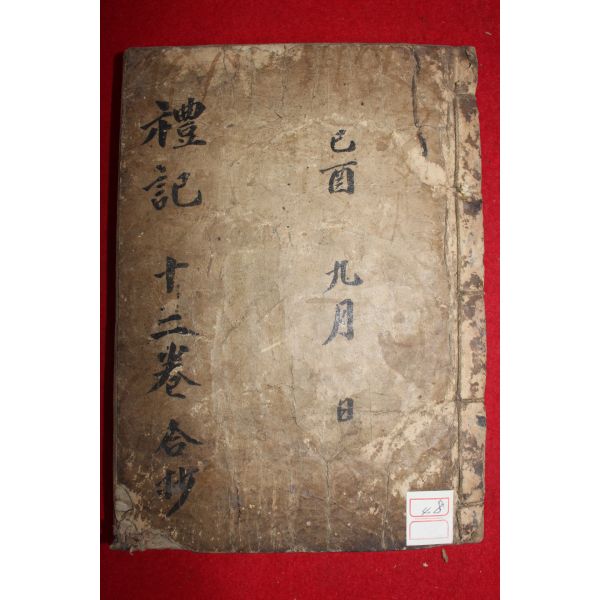 己酉 九月 日
禮記 十二卷 合抄
48